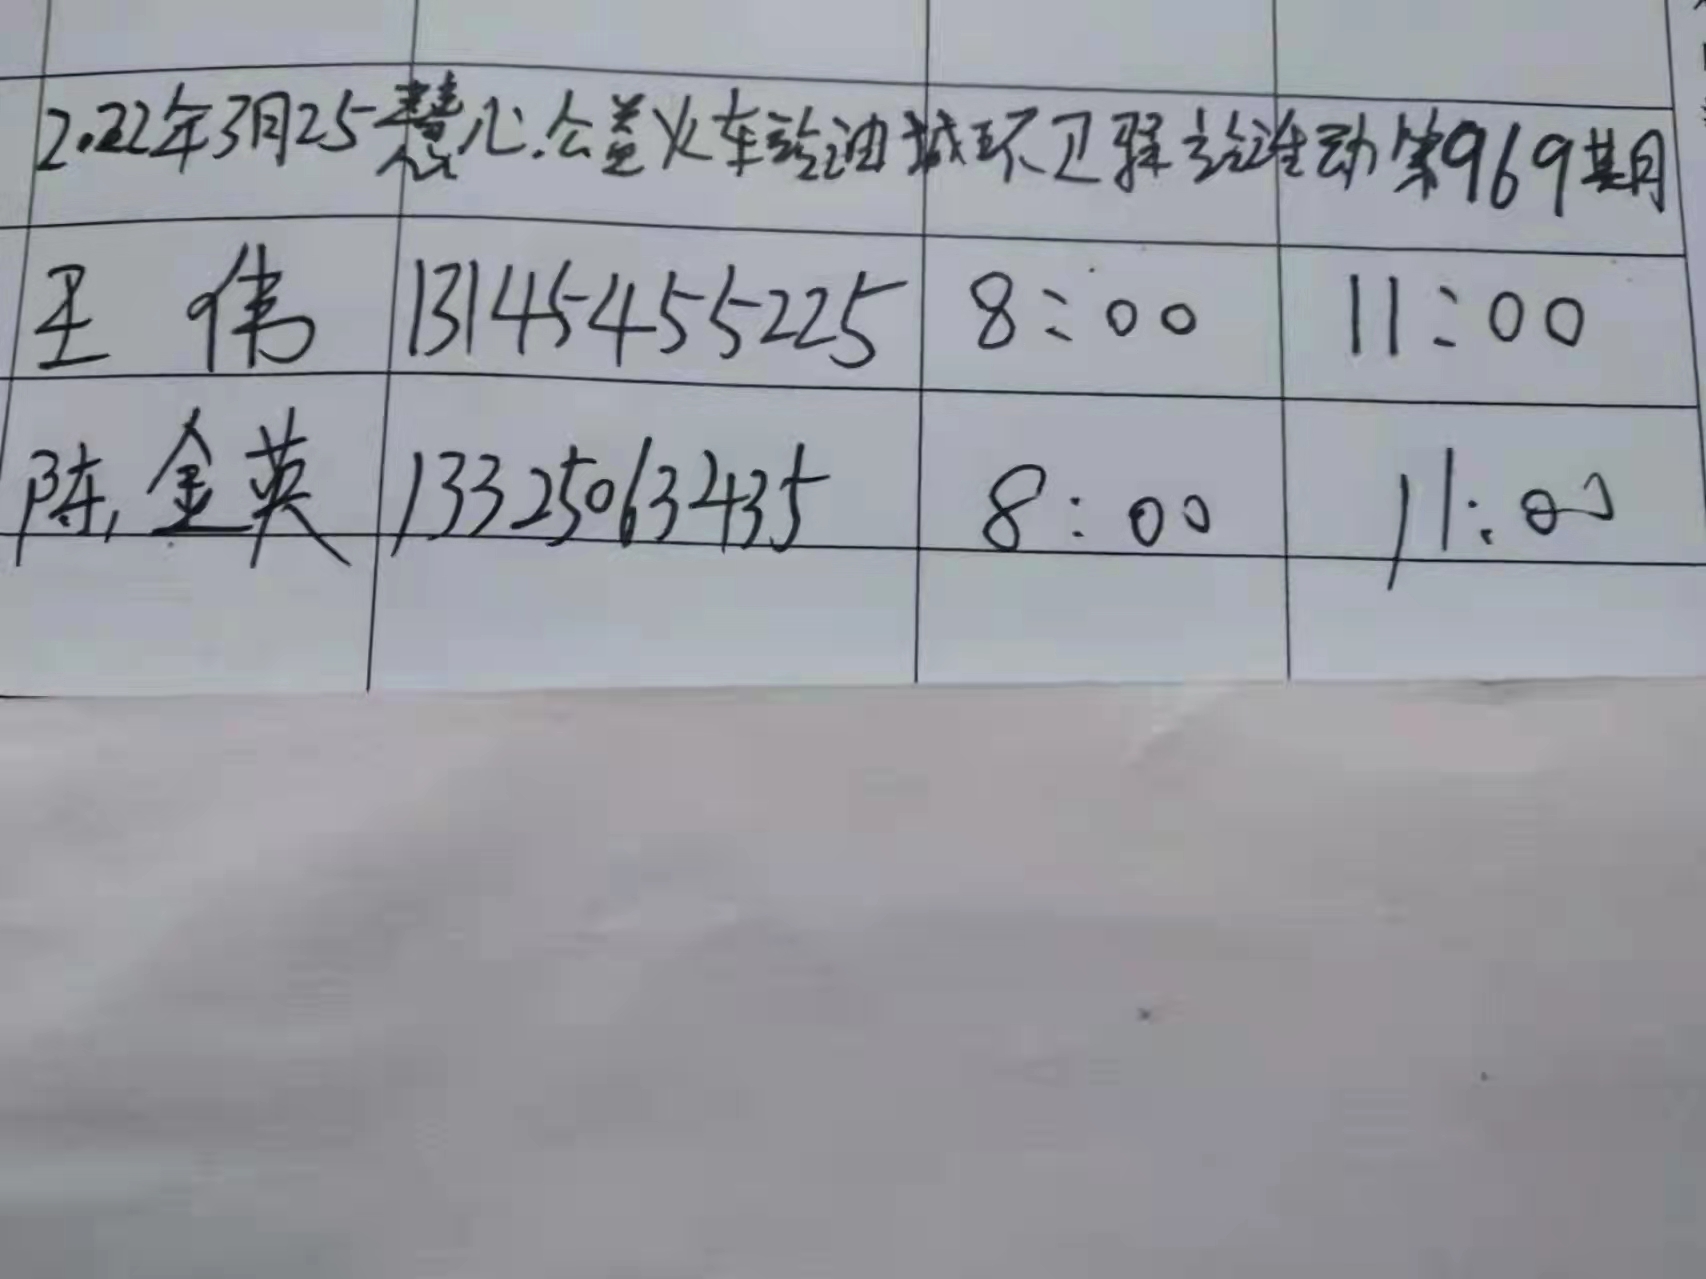 2022年3月25慧心公益火车站油城环卫驿站活动第969期
王 伟 13145455225 8:00 11:00
陈金英 13325063435 8:00 11:00